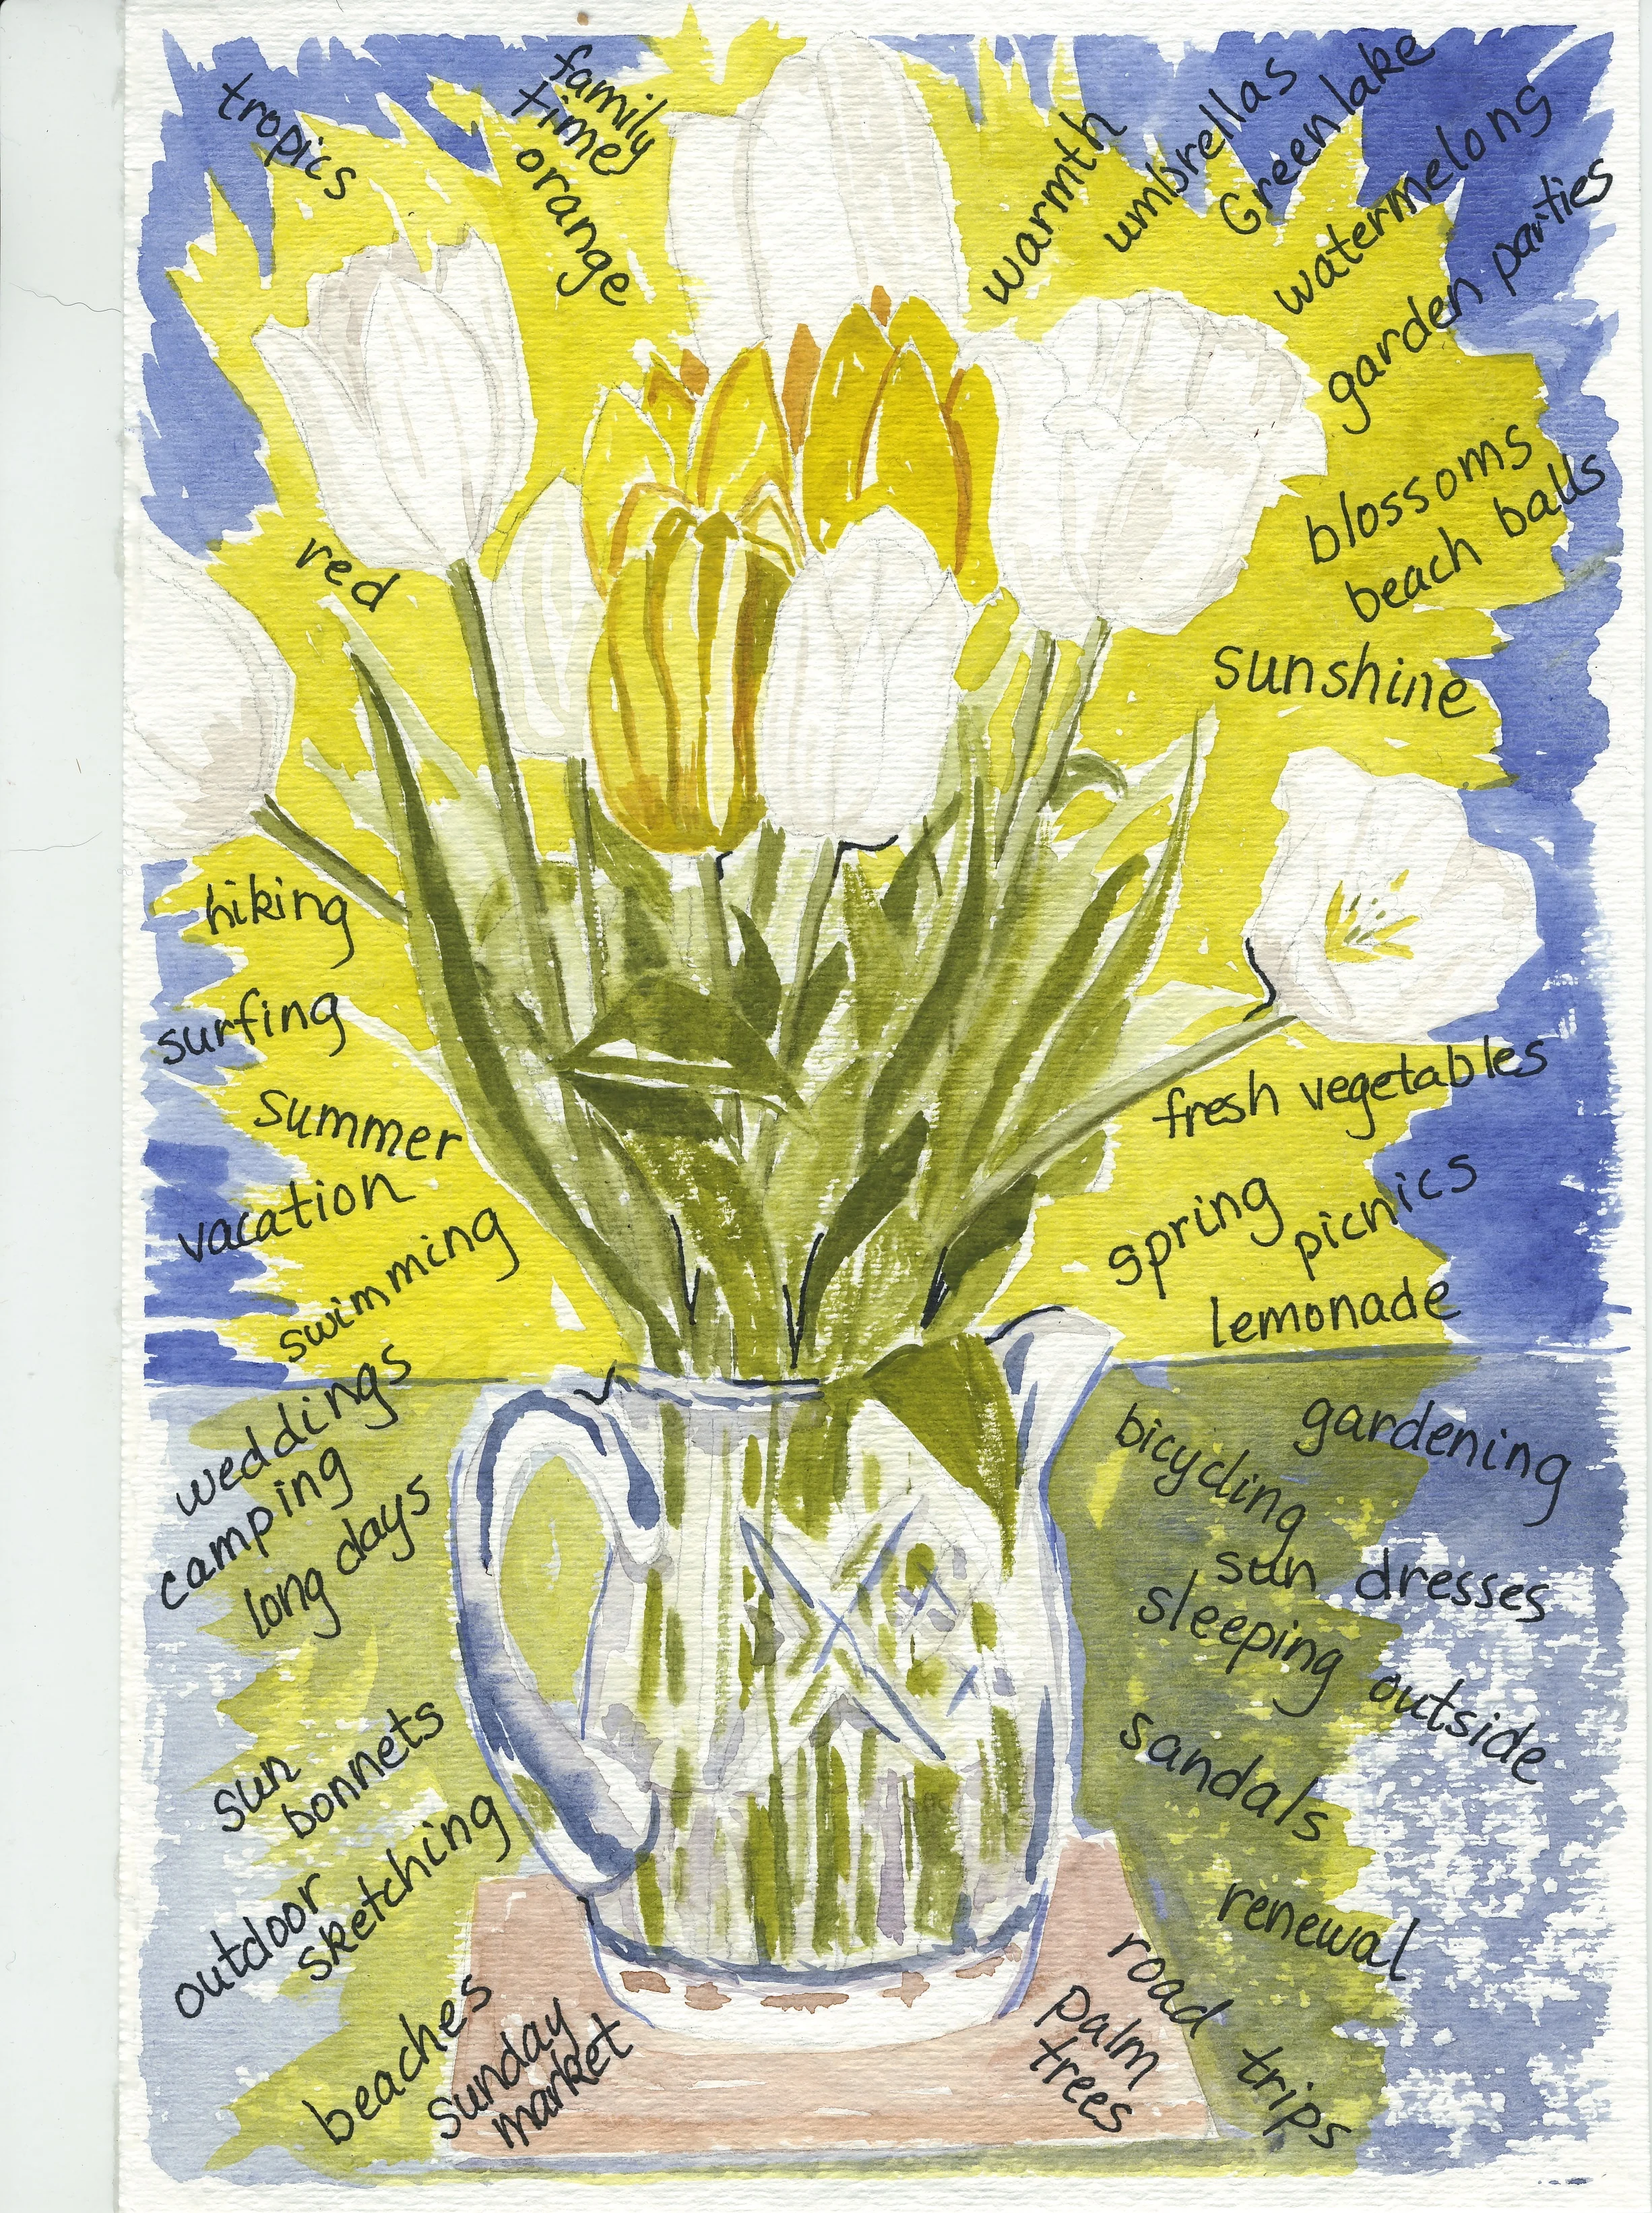 tropics
family
time
orange
warmth
umbrellas
Greenlake
watermelons
garden parties
blossoms
beach balls
sunshine
red
hiking
surfing
summer
vacation
swimming
weddings
camping
long days
sun
bonnets
outdoor
sketching
beaches
sunday
market
fresh vegetables
spring
picnics
lemonade
gardening
bicycling
sun dresses
sleeping outside
sandals
renewal
road trips
palm
trees